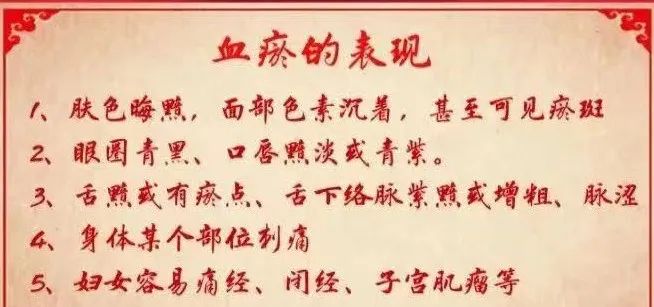 血瘀的表现
1、肤色晦黯，面部色素沉着，甚至可见瘀斑
2、眼圈青黑、口唇黯淡或青紫。
3、舌黯或有瘀点、舌下络脉紫黯或增粗、脉涩
4、身体某个部位刺痛
5、妇女容易痛经、闭经、子宫肌瘤等